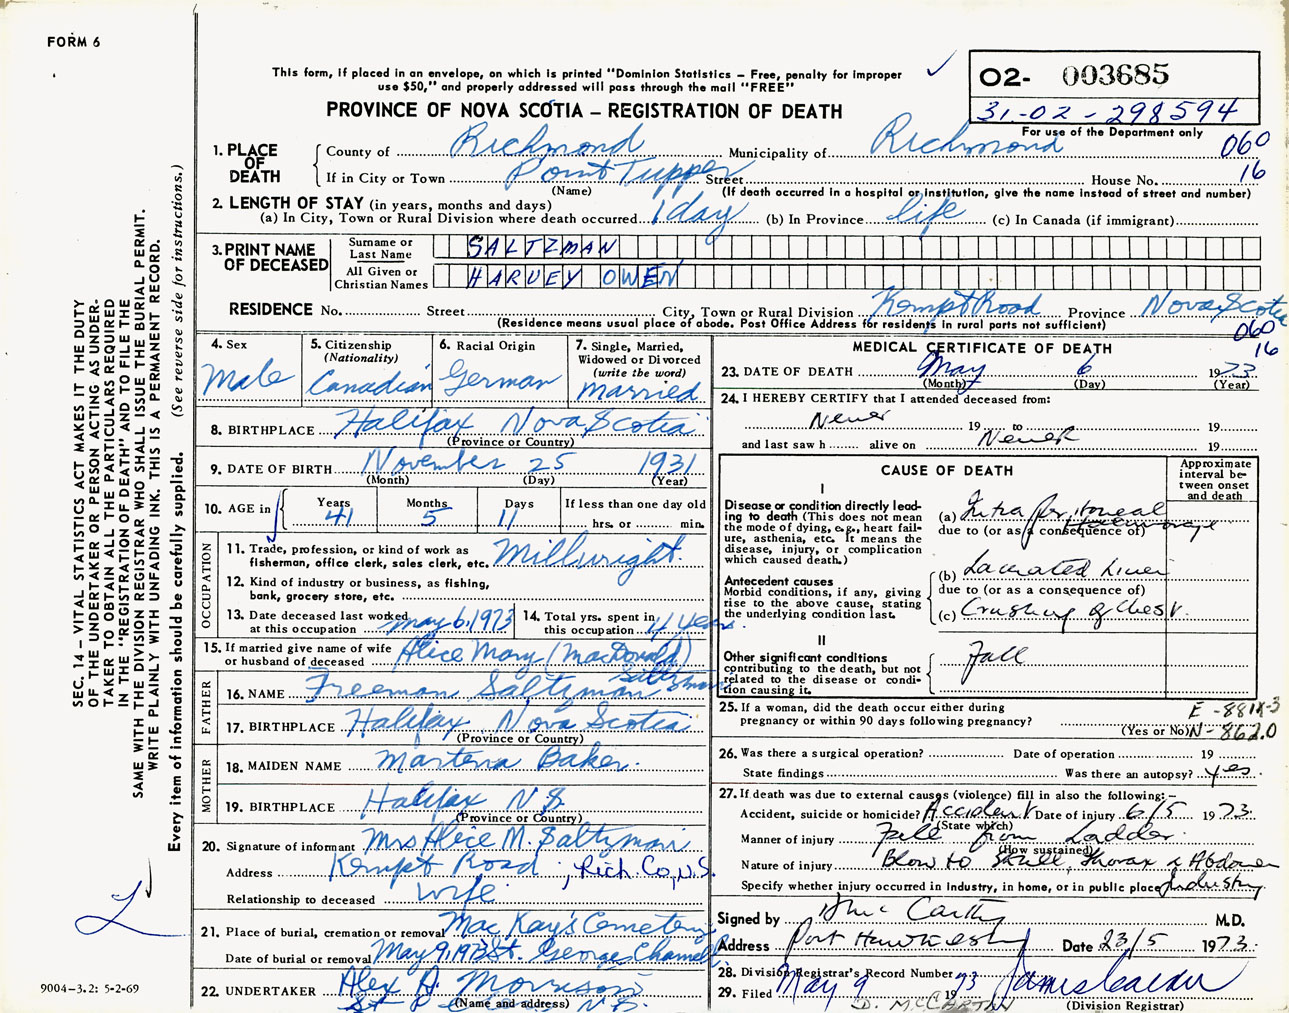 FORM 6
This form, if placed in an envelope, on which is printed "Dominion Statistics – Free, penalty for improper
use $50," and properly addressed will pass through the mail "FREE"
PROVINCE OF NOVA SCOTIA – REGISTRATION OF DEATH
O2- 003685
31-02-298594
For use of the Department only
060
16
1. PLACE OF DEATH
County of Richmond Municipality of Richmond
If in City or Town Point Tupper Street House No.
(Name) (If death occurred in a hospital or institution, give the name instead of street and number)
2. LENGTH OF STAY (in years, months and days)
(a) In City, Town or Rural Division where death occurred 1 day (b) In Province life (c) In Canada (if immigrant)
3. PRINT NAME OF DECEASED
Surname or Last Name SALTZMAN
All Given or Christian Names HARVEY OWEN
RESIDENCE No. Street City, Town or Rural Division Kempt Road Province Nova Scotia
(Residence means usual place of abode. Post Office Address for residents in rural parts not sufficient)
060
16
4. Sex Male
5. Citizenship (Nationality) Canadian
6. Racial Origin German
7. Single, Married, Widowed or Divorced (write the word) Married
8. BIRTHPLACE Halifax Nova Scotia
(Province or Country)
9. DATE OF BIRTH November 25 1931
(Month) (Day) (Year)
10. AGE in Years 41 Months 5 Days 11 If less than one day old hrs. or min.
OCCUPATION
11. Trade, profession, or kind of work as
fisherman, office clerk, sales clerk, etc. Millwright
12. Kind of industry or business, as fishing,
bank, grocery store, etc.
13. Date deceased last worked
at this occupation May 6, 1973
14. Total yrs. spent in
this occupation 4 years.
15. If married give name of wife
or husband of deceased Alice Mary (MacDonald)
Saltzman
FATHER
16. NAME Freeman Saltzman
17. BIRTHPLACE Halifax Nova Scotia
(Province or Country)
MOTHER
18. MAIDEN NAME Martena Baker.
19. BIRTHPLACE Halifax N S
(Province or Country)
20. Signature of informant Mrs Alice M. Saltzman
Address Kempt Road, Rich. Co, N.S.
Relationship to deceased Wife
21. Place of burial, cremation or removal MacKay's Cemetery
Date of burial or removal May 9, 1973 St. Georges Channel
22. UNDERTAKER Alex D. Morrison
(Name and address)
MEDICAL CERTIFICATE OF DEATH
23. DATE OF DEATH May 6 1973
(Month) (Day) (Year)
24. I HEREBY CERTIFY that I attended deceased from:
Never 19 to 19
and last saw h alive on Never 19
CAUSE OF DEATH
Approximate interval between onset and death
I
Disease or condition directly lead-
ing to death (This does not mean
the mode of dying, e.g., heart fail-
ure, asthenia, etc. It means the
disease, injury, or complication
which caused death.)
(a) Intra peritoneal
Haemorrage
due to (or as a consequence of)
Antecedent causes
Morbid conditions, if any, giving
rise to the above cause, stating
the underlying condition last.
(b) Lacerated Liver
due to (or as a consequence of)
(c) Crushing of Chest.
II
Other significant conditions
contributing to the death, but not
related to the disease or condi-
tion causing it.
Fall
25. If a woman, did the death occur either during
pregnancy or within 90 days following pregnancy?
(Yes or No)
N-862.0
26. Was there a surgical operation? Date of operation 19
State findings Was there an autopsy? yes.
27. If death was due to external causes (violence) fill in also the following:–
Accident, suicide or homicide? Accident Date of injury 6/5 1973.
(State which)
Manner of injury Fall from Ladder.
(How sustained)
Nature of injury Blow to Skull, Thorax & Abdomen
Specify whether injury occurred in Industry, in home, or in public place Industry.
Signed by D Mc Carthy M.D.
Address Port Hawkesbury Date 23/5 1973.
28. Division Registrar's Record Number
29. Filed May 9 1973
(Division Registrar)
SEC. 14 – VITAL STATISTICS ACT MAKES IT THE DUTY
OF THE UNDERTAKER OR PERSON ACTING AS UNDER-
TAKER TO OBTAIN ALL THE PARTICULARS REQUIRED
IN THE "REGISTRATION OF DEATH" AND TO FILE THE
SAME WITH THE DIVISION REGISTRAR WHO SHALL ISSUE THE BURIAL PERMIT.
WRITE PLAINLY WITH UNFADING INK. THIS IS A PERMANENT RECORD.
Every item of information should be carefully supplied. (See reverse side for instructions.)
9004-3.2: 5-2-69